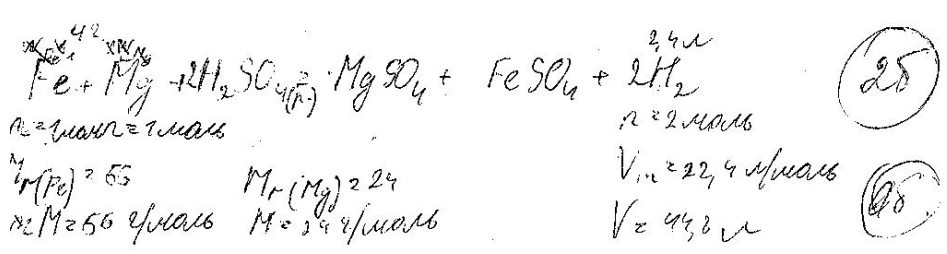 2,4 л
Fe + Mg + 2H₂SO₄(р) = MgSO₄ + FeSO₄ + 2H₂
n = 1 моль n = 1 моль n = 2 моль
Mr(Fe) = 56 Mr(Mg) = 24 Vm = 22,4 л/моль
M = 56 г/моль M = 24 г/моль V = 44,8 л
2б